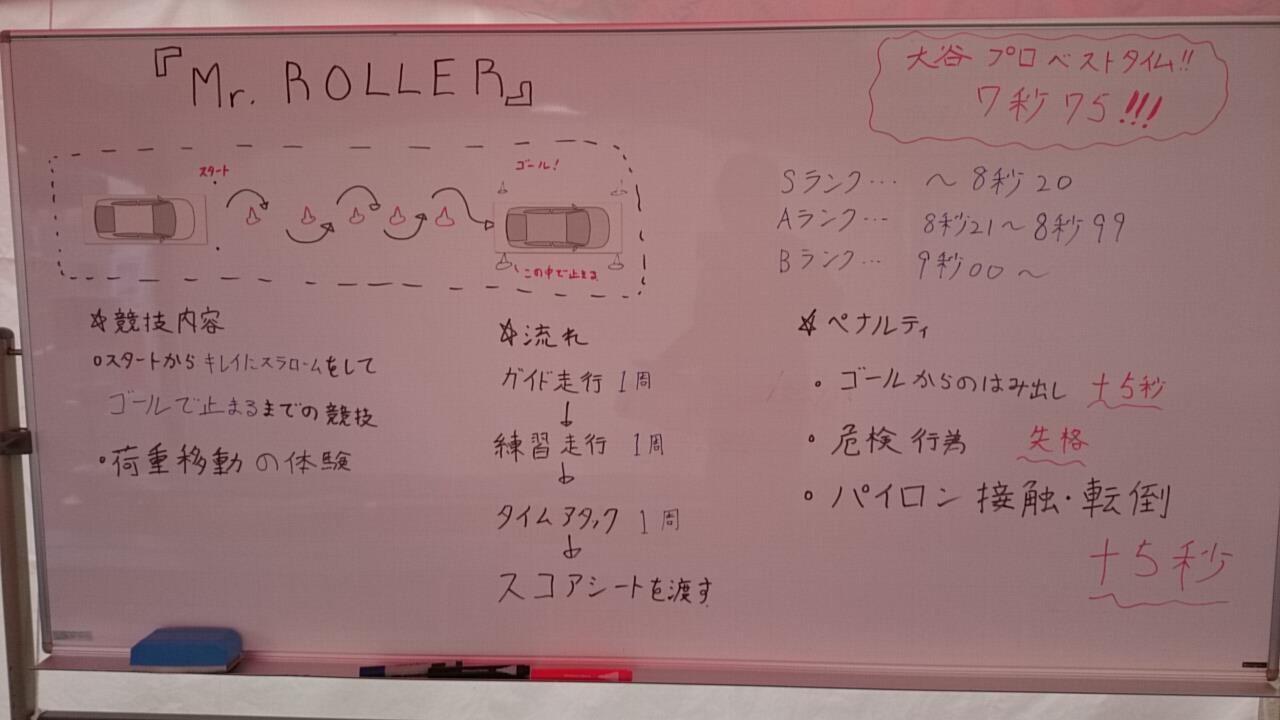 『Mr. ROLLER』
大谷プロ ベストタイム!!
7秒75!!!
スタート
ゴール!
この中で止まる
Sランク… 〜8秒20
Aランク… 8秒21〜8秒99
Bランク… 9秒00〜
☆競技内容
○スタートからキレイにスラロームをして
ゴールで止まるまでの競技
・荷重移動の体験
☆流れ
ガイド走行 1周
↓
練習走行 1周
↓
タイムアタック 1周
↓
スコアシートを渡す
☆ペナルティ
・ゴールからのはみ出し +5秒
・危検行為 失格
・パイロン接触・転倒
+5秒